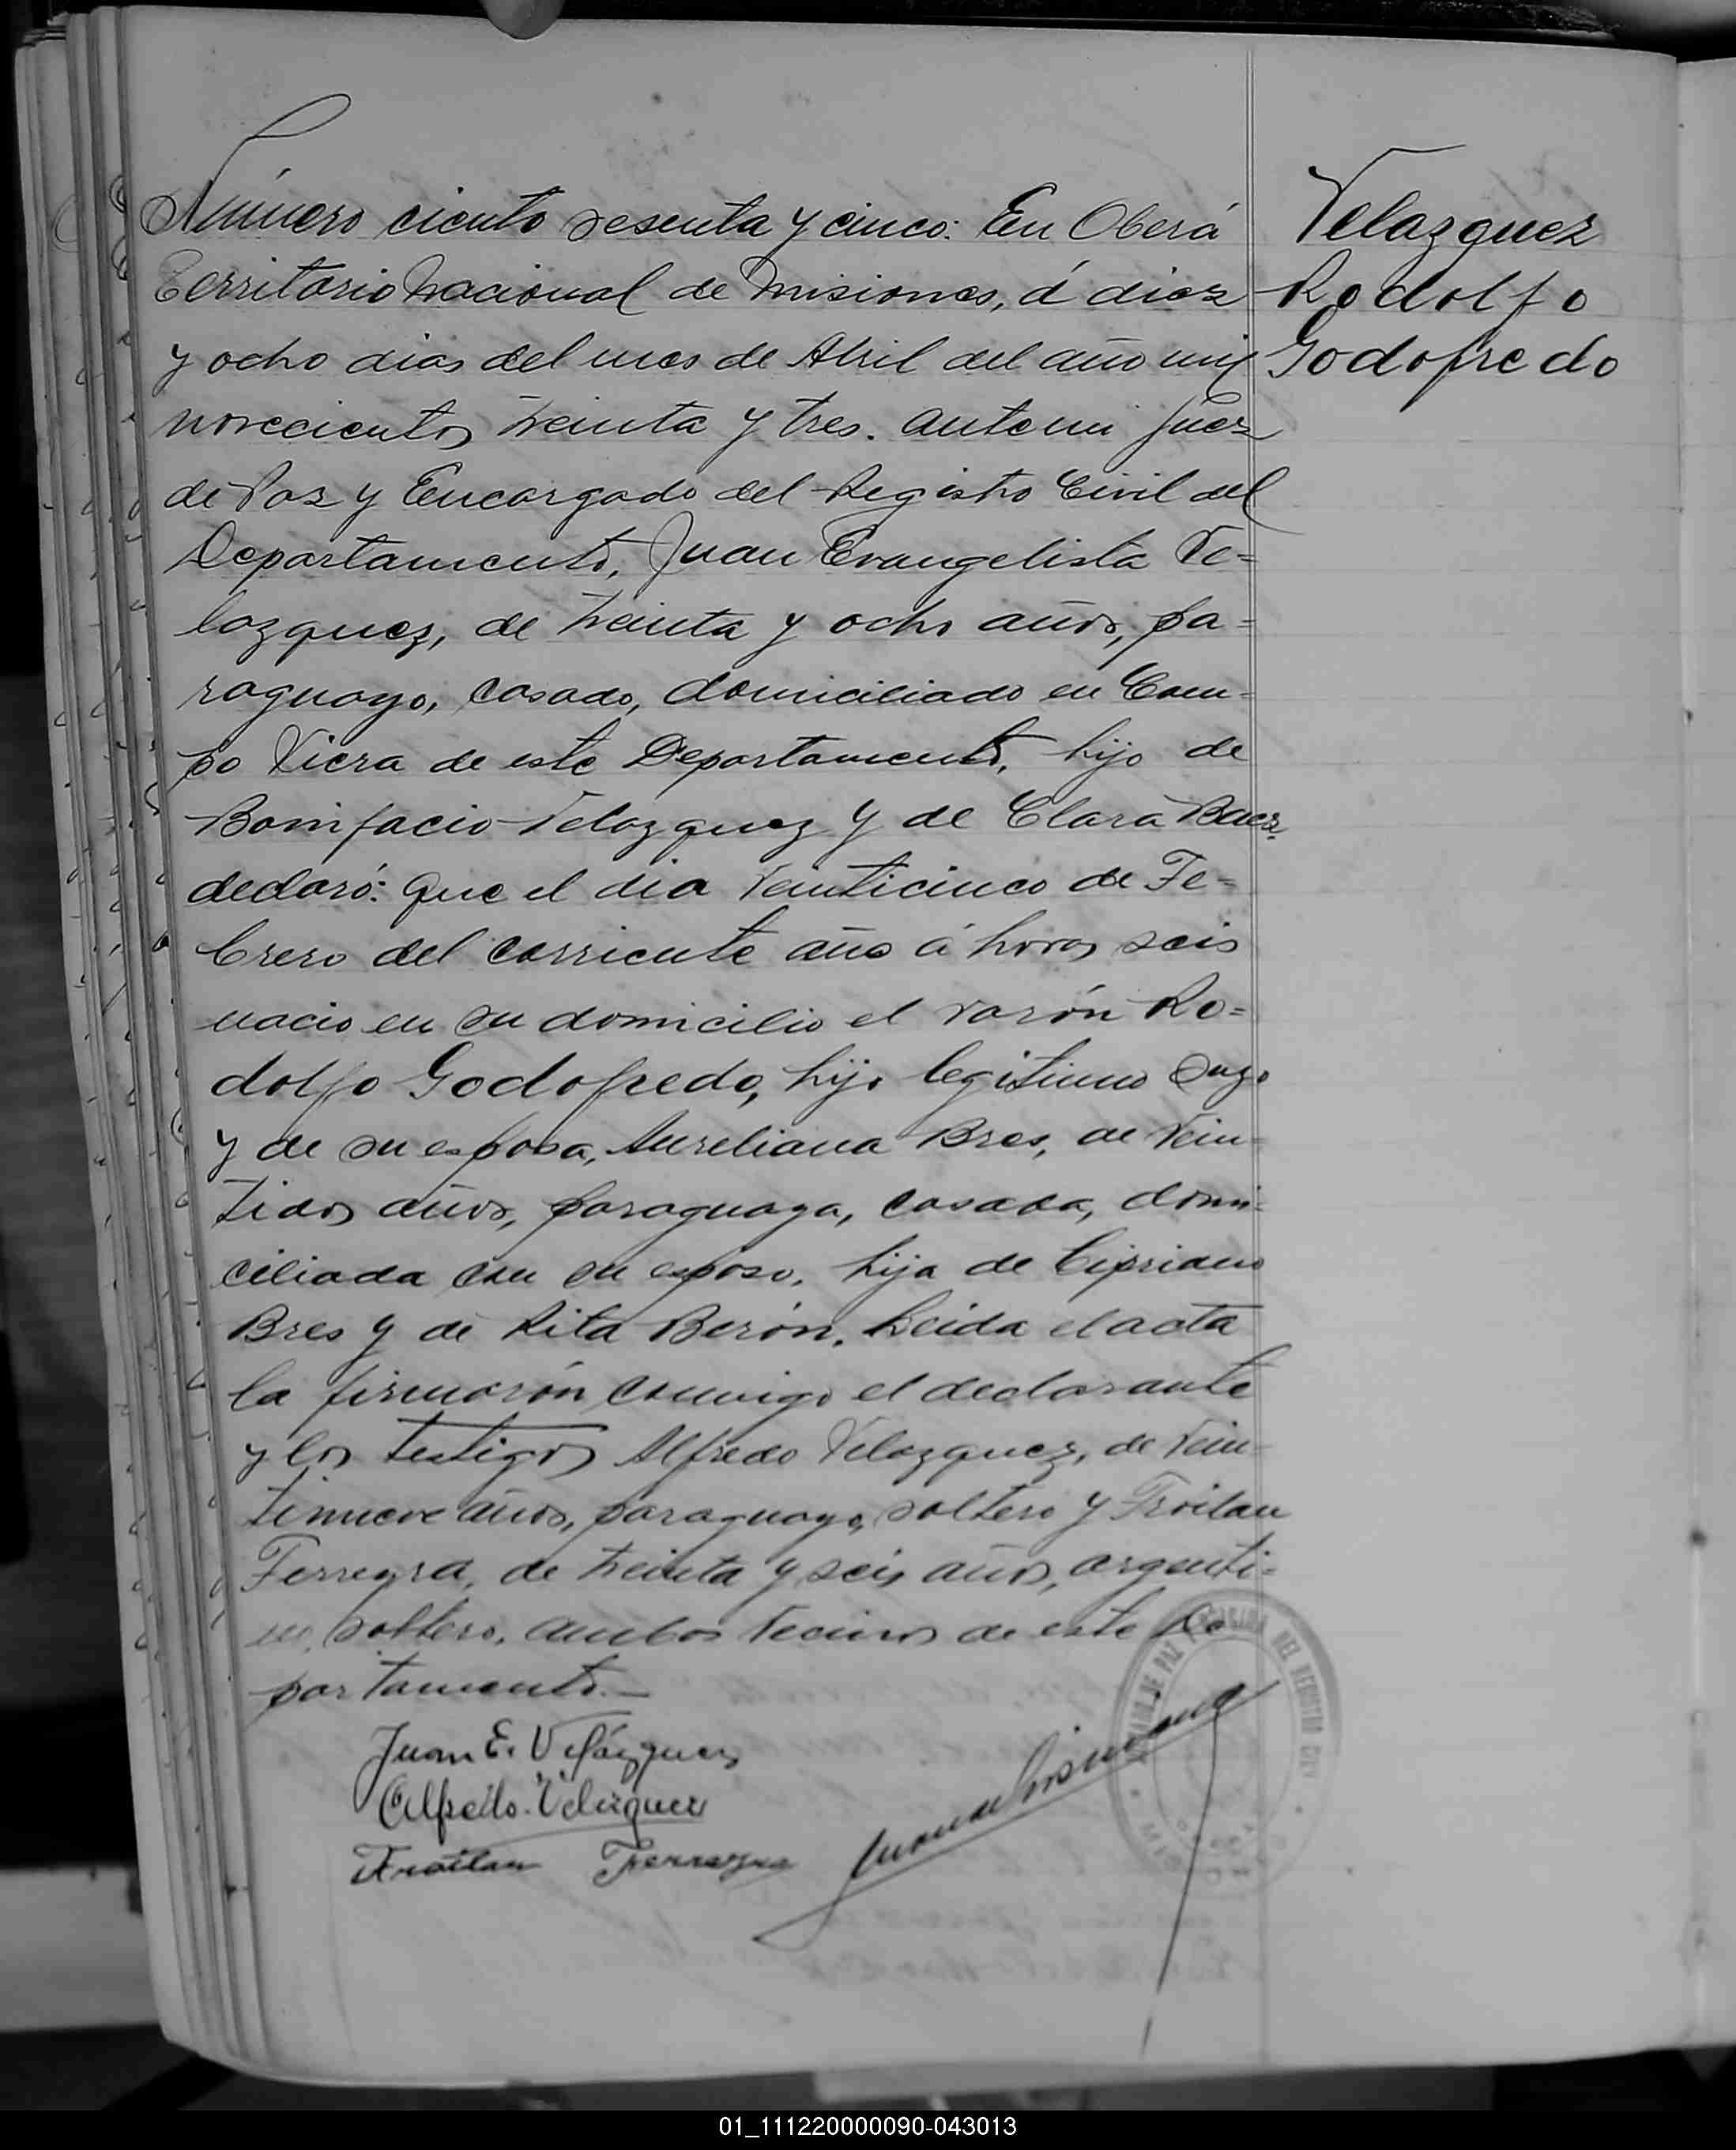 Número ciento sesenta y cinco: En Oberá
Territorio Nacional de Misiones, á diez
y ocho dias del mes de Abril del año mil
novecientos treinta y tres. Ante mi Juez
de Paz y Encargado del Registro Civil del
Departamento, Juan Evangelista Ve=
lazquez, de treinta y ocho años, pa=
raguayo, casado, domiciliado en Cam=
po Viera de este Departamento, hijo de
Bonifacio Velazquez y de Clara Baez
declaró: Que el dia veinticinco de Fe=
brero del corriente año á horas seis
nacio en su domicilio el varón Ro=
dolfo Godofredo, hijo legitimo suyo
y de su esposa, Aureliana Bres, de vein=
tidos años, paraguaya, casada, domi=
ciliada con su esposo, hija de Cipriano
Bres y de Rita Berón. Leida el acta
la firmarón conmigo el declarante
y los testigos Alfredo Velazquez, de vein=
tinueve años, paraguayo, soltero y Froilan
Ferreyra, de treinta y seis años, argenti=
no, soltero, ambos vecinos de este De
partamento.—
Juan E. Velázquez
Alfredo Velazquez
Froilan Ferreyra
Velazquez
Rodolfo
Godofredo
DE PAZ
DEL REGISTRO CIVIL
01_111220000090-043013